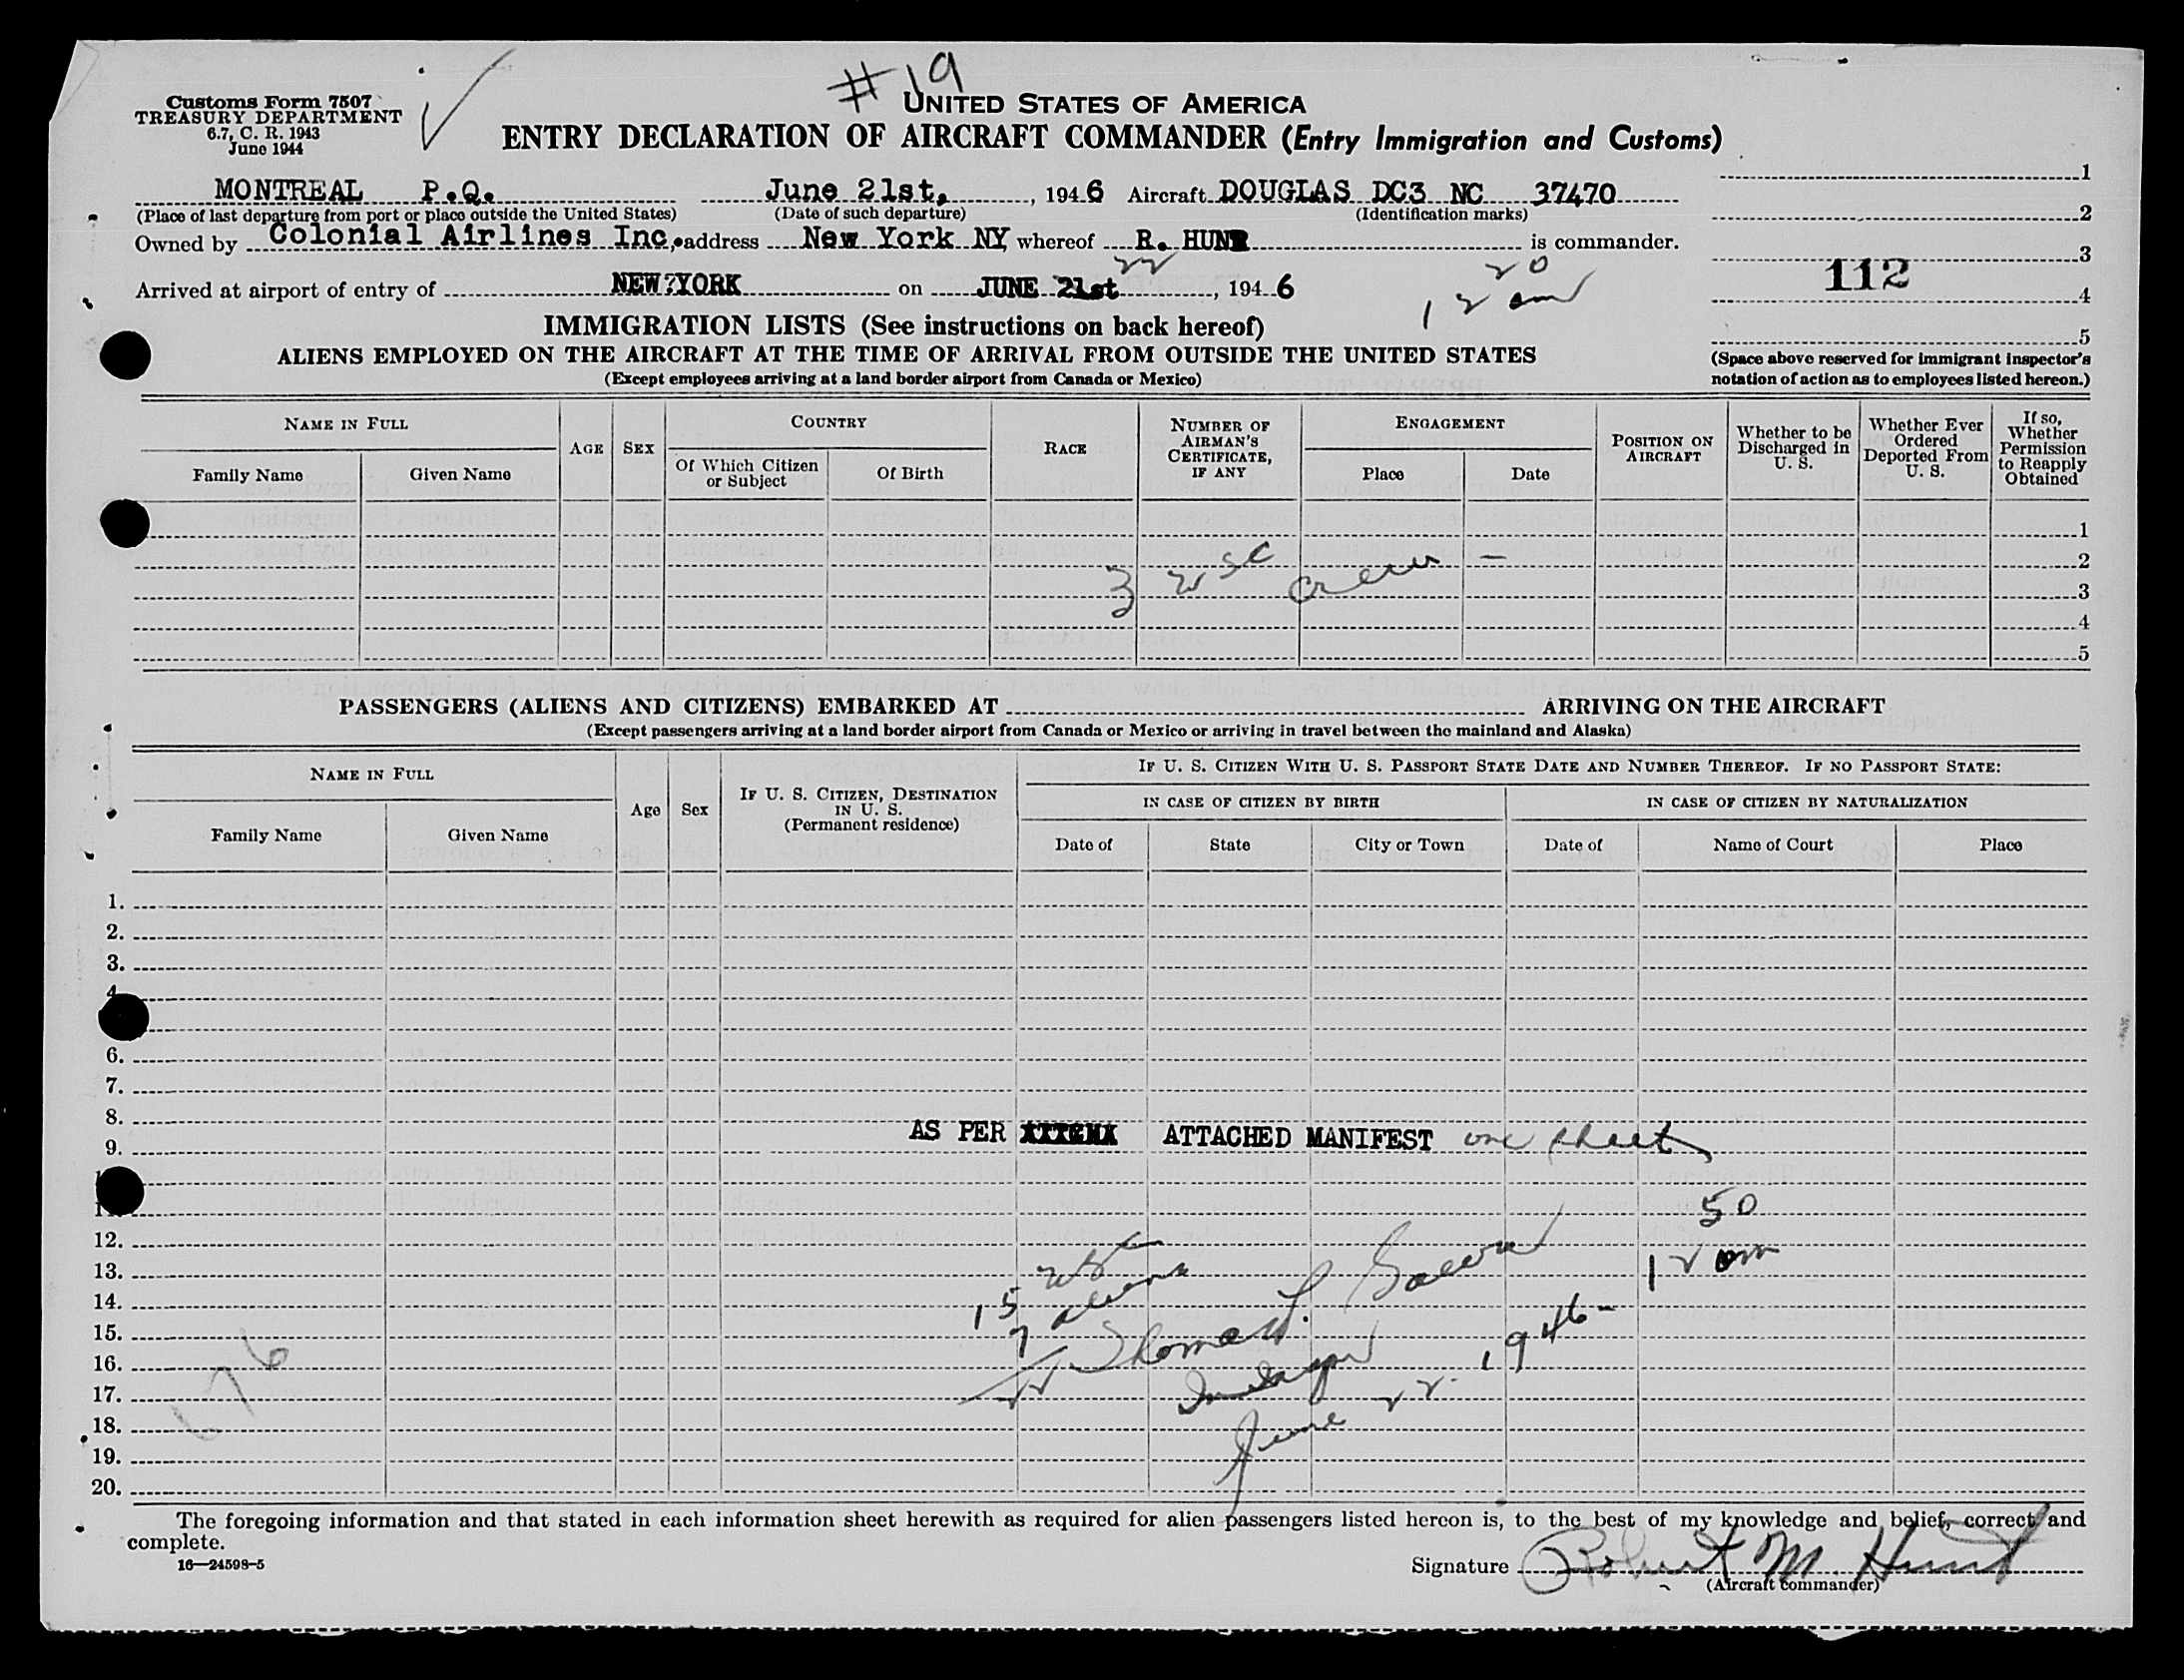 #19
Customs Form 7507
TREASURY DEPARTMENT
6.7, C. R. 1943
June 1944
UNITED STATES OF AMERICA
ENTRY DECLARATION OF AIRCRAFT COMMANDER (Entry Immigration and Customs)
MONTREAL P.Q. June 21st, , 1946 Aircraft DOUGLAS DC3 NC 37470
(Place of last departure from port or place outside the United States) (Date of such departure) (Identification marks)
Owned by Colonial Airlines Inc, address New York NY, whereof R. HUNT is commander.
22
Arrived at airport of entry of NEW?YORK on JUNE 21st , 1946
12 20 am
1
2
3
112
4
5
(Space above reserved for immigrant inspector's
notation of action as to employees listed hereon.)
IMMIGRATION LISTS (See instructions on back hereof)
ALIENS EMPLOYED ON THE AIRCRAFT AT THE TIME OF ARRIVAL FROM OUTSIDE THE UNITED STATES
(Except employees arriving at a land border airport from Canada or Mexico)
NAME IN FULL AGE SEX COUNTRY RACE NUMBER OF AIRMAN'S CERTIFICATE, IF ANY ENGAGEMENT POSITION ON AIRCRAFT Whether to be Discharged in U. S. Whether Ever Ordered Deported From U. S. If so, Whether Permission to Reapply Obtained
Family Name Given Name Of Which Citizen or Subject Of Birth Place Date
1
2
3 crew –
3
4
5
PASSENGERS (ALIENS AND CITIZENS) EMBARKED AT ARRIVING ON THE AIRCRAFT
(Except passengers arriving at a land border airport from Canada or Mexico or arriving in travel between the mainland and Alaska)
NAME IN FULL Age Sex IF U. S. CITIZEN, DESTINATION IN U. S. (Permanent residence) IF U. S. CITIZEN WITH U. S. PASSPORT STATE DATE AND NUMBER THEREOF. IF NO PASSPORT STATE:
IN CASE OF CITIZEN BY BIRTH IN CASE OF CITIZEN BY NATURALIZATION
Family Name Given Name Date of State City or Town Date of Name of Court Place
1.
2.
3.
4
6.
7.
8.
9. AS PER ATTACHED MANIFEST one sheet
12.
13.
14.
15.
16.
17.
18.
19.
20.
12 50 am
15
7 aliens
Thomas J.
June 22. 1946-
676
The foregoing information and that stated in each information sheet herewith as required for alien passengers listed hereon is, to the best of my knowledge and belief, correct and
complete.
16—24598-5
Signature Robert M. Hunt
(Aircraft commander)